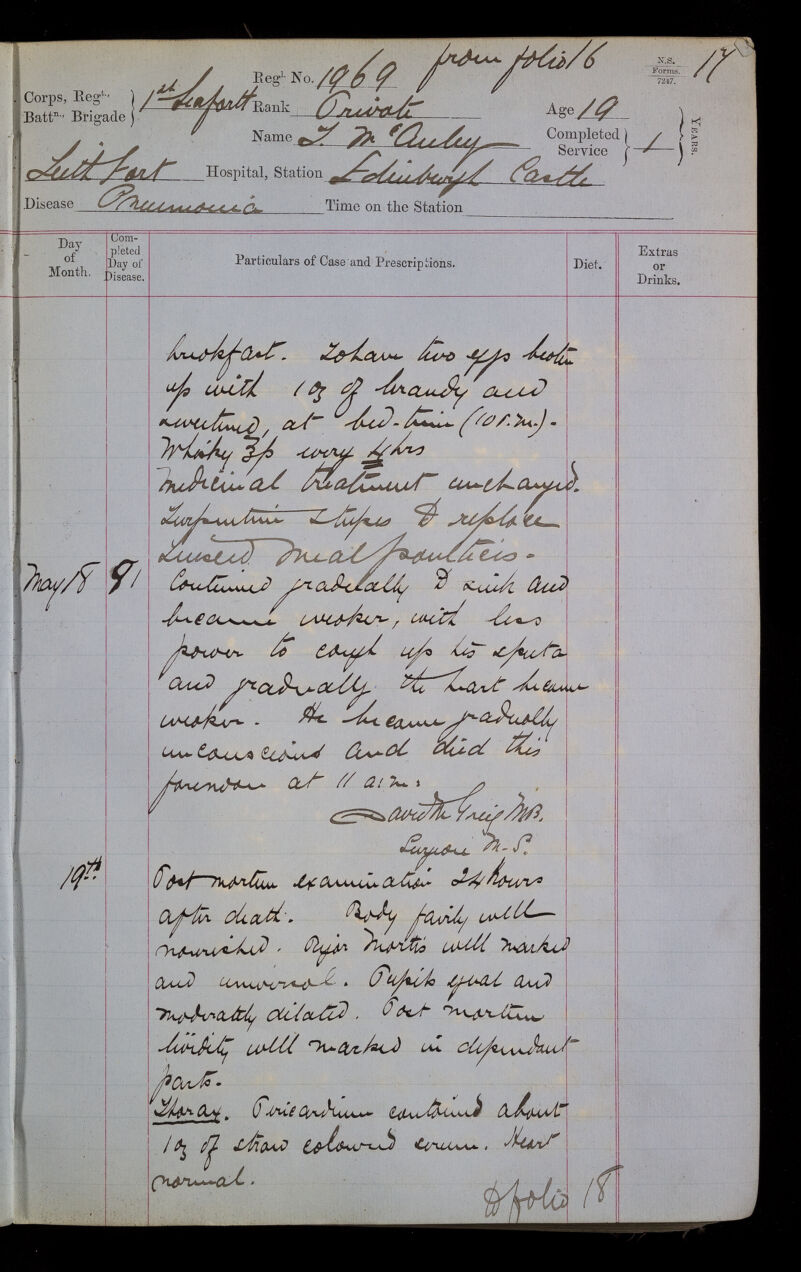 from folio 16
17
N.S.
Forms.
7247.
Corps, Regt.
Battn., Brigade
1st Seaforth
Regl. No. 1969
Rank Private
Age 19
Name T. McAuley
Completed Service 1 YEARS.
Leith Fort Hospital, Station Edinburgh Castle
Disease Pneumonia Time on the Station
Day of Month.
Completed Day of Disease.
Particulars of Case and Prescriptions.
Diet.
Extras or Drinks.
breakfast. To have two eggs beaten
up with 1 oz of brandy and
sweetened, at bed-time (10 P.m.).
Whisky ʒp every 4 hrs
Medicinal treatment unchanged.
Turpentine Stupes to replace
Linseed meal poultices.
May 18 Continued gradually to sink and
became weaker, with less
power to cough up his sputa
and gradually the heart became
weaker. He became gradually
unconscious and died this
forenoon at 11 a.m.
David M Greig M.B.
Surgeon M.S.
19th Post mortem examination 24 hours
after death. Body fairly well
nourished. Rigor Mortis well marked
and universal. Pupils equal and
moderately dilated. Post mortem
lividity well marked in dependant
parts.
Thorax. Pericardium contained about
1 oz of straw coloured serum. Heart
normal.
to folio 18